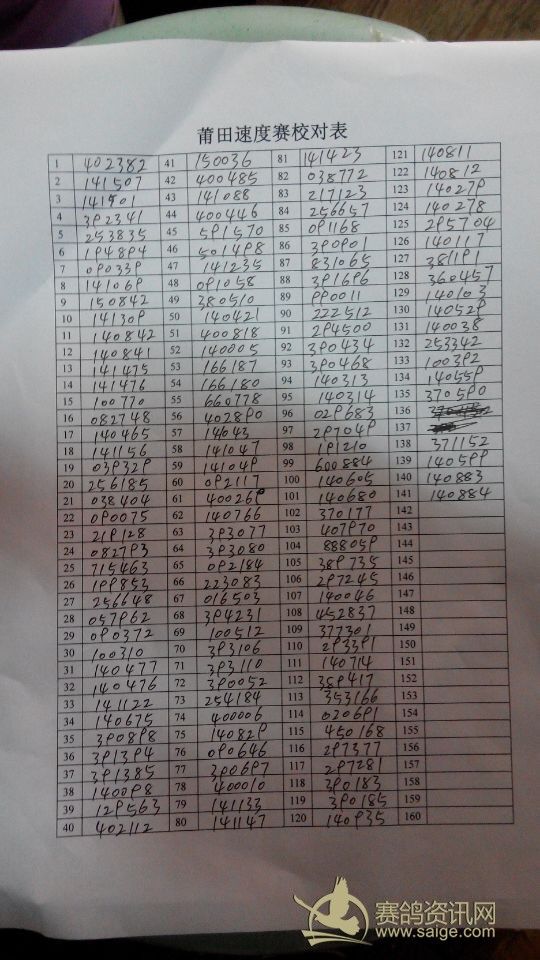 莆田速度赛校对表
1 402382 41 150036 81 141423 121 140811
2 141507 42 400485 82 038772 122 140812
3 141501 43 141088 83 217123 123 140279
4 392341 44 400446 84 256657 124 140278
5 253835 45 591570 85 091168 125 295704
6 194894 46 501498 86 390901 126 140117
7 090339 47 141235 87 831065 127 381191
8 141069 48 091058 88 391696 128 360457
9 150842 49 380510 89 990011 129 140103
10 141309 50 140421 90 222512 130 140529
11 140842 51 400818 91 294500 131 140038
12 140841 52 140005 92 390434 132 253342
13 141475 53 166187 93 390468 133 100392
14 141476 54 166180 94 140313 134 140559
15 100770 55 660778 95 140314 135 370590
16 082748 56 402890 96 029683 136
17 140465 57 14643 97 297049 137
18 141156 58 141047 98 191210 138 371152
19 039329 59 141049 99 600884 139 140599
20 256185 60 092117 100 140605 140 140883
21 038404 61 400269 101 140680 141 140884
22 090075 62 140766 102 370177 142
23 219128 63 393077 103 407970 143
24 082793 64 393080 104 888059 144
25 715463 65 092184 105 389735 145
26 199853 66 223083 106 297245 146
27 256648 67 016503 107 140046 147
28 057962 68 394231 108 452837 148
29 090372 69 100512 109 377301 149
30 100310 70 393106 110 293391 150
31 140477 71 393110 111 140714 151
32 140476 72 390052 112 389417 152
33 141122 73 254184 113 353166 153
34 140675 74 400006 114 020691 154
35 390898 75 140829 115 450168 155
36 391394 76 090646 116 297377 156
37 391385 77 390697 117 297281 157
38 140098 78 400010 118 390183 158
39 129563 79 141133 119 390185 159
40 402112 80 141147 120 140935 160
赛鸽资讯网
www.saige.com